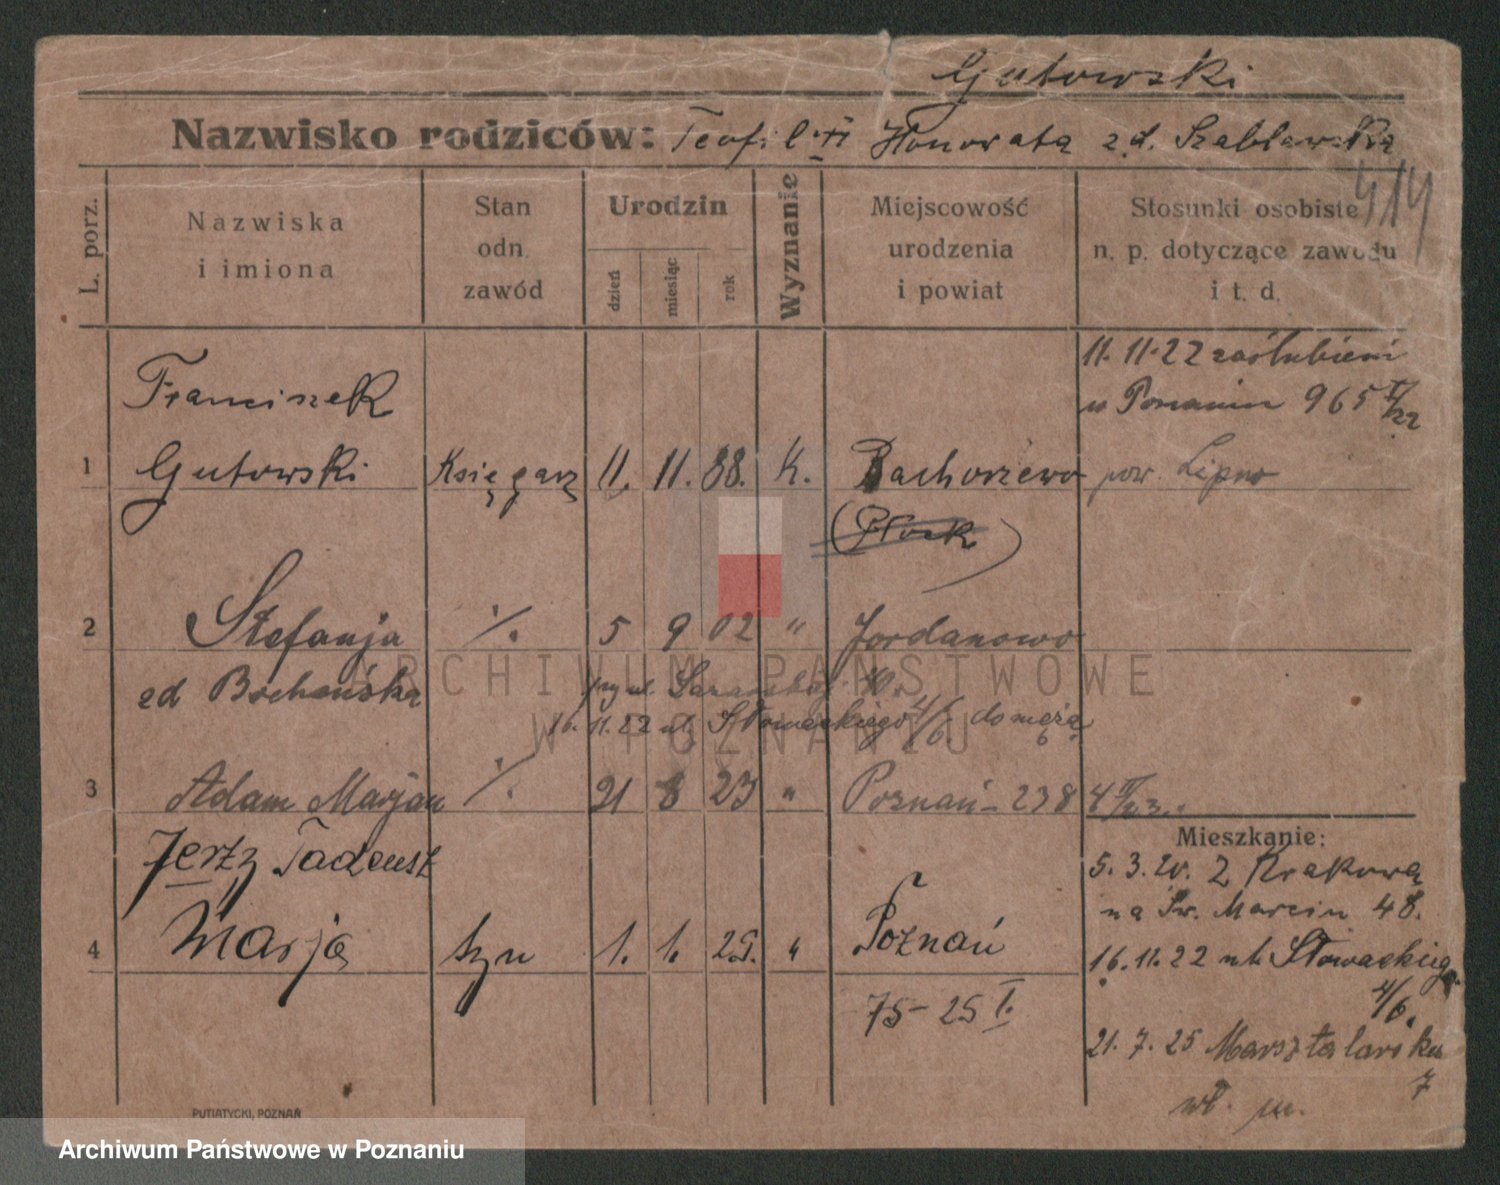 Gutowski
Nazwisko rodziców: Teofil i Honorata z d. Szablewska
414
L. porz.
Nazwiska
i imiona
Stan
odn.
zawód
Urodzin
dzień
miesiąc
rok
Wyznanie
Miejscowość
urodzenia
i powiat
Stosunki osobiste
n. p. dotyczące zawodu
i t. d.
11. 11. 22 zaślubieni
w Poznaniu 965 V/22
Franciszek
1 Gutowski Księgarz 11. 11. 88. K. Bachorzewo pow. Lipno
(Płock)
2 Stefanja ./. 5 9 02 " Jordanowo
zd Bocheńska
16. 11. 22 ul. Słowackiego 4/6 do męża
3 Adam Marjan ./. 21 8 23 " Poznań - 238 4
Mieszkanie:
Jerzy Tadeusz
5. 3. 20. Z Krakowa
na Św. Marcin 48.
4 Marja syn 1. 1. 25. " Poznań
16. 11. 22 ul. Słowackiego
4/6.
75-25 I.
21. 7. 25 Marsztalarska
7
wł. m.
PUTIATYCKI, POZNAŃ
ARCHIWUM PAŃSTWOWE
W POZNANIU
Archiwum Państwowe w Poznaniu